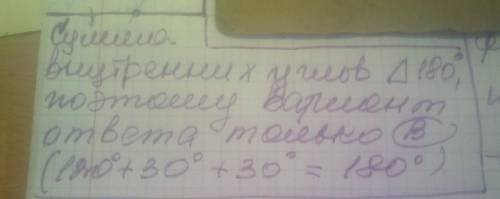 Сумма
внутренних углов △ 180°,
поэтому вариант
ответа только В
(120° + 30° + 30° = 180°)